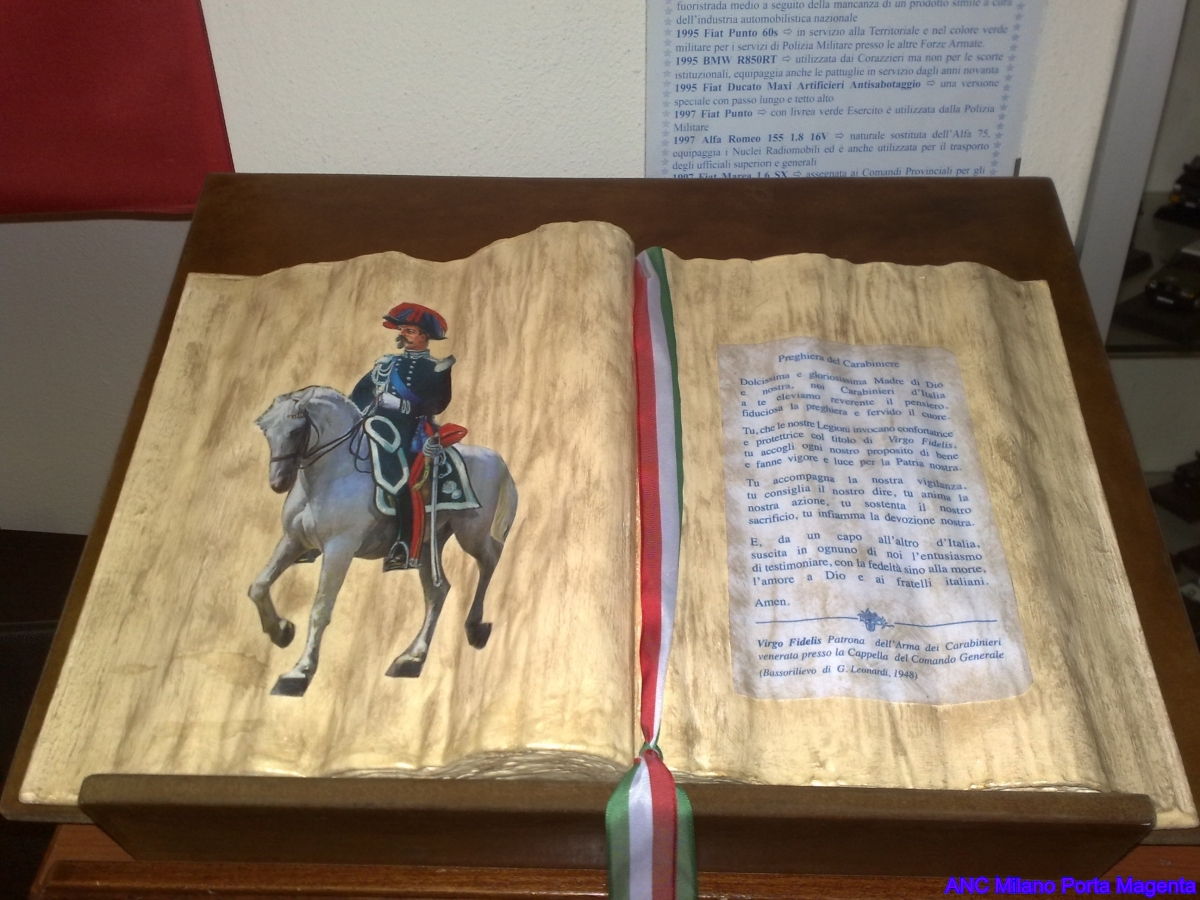 fuoristrada medio a seguito della mancanza di un prodotto simile a cura
dell'industria automobilistica nazionale
1995 Fiat Punto 60s ⇨ in servizio alla Territoriale e nel colore verde
militare per i servizi di Polizia Militare presso le altre Forze Armate.
1995 BMW R850RT ⇨ utilizzata dai Corazzieri ma non per le scorte
istituzionali, equipaggia anche le pattuglie in servizio dagli anni novanta
1995 Fiat Ducato Maxi Artificieri Antisabotaggio ⇨ una versione
speciale con passo lungo e tetto alto
1997 Fiat Punto ⇨ con livrea verde Esercito è utilizzata dalla Polizia
Militare
1997 Alfa Romeo 155 1.8 16V ⇨ naturale sostituta dell'Alfa 75,
equipaggia i Nuclei Radiomobili ed è anche utilizzata per il trasporto
degli ufficiali superiori e generali
1997 Fiat Marea 1.6 SX ⇨ assegnata ai Comandi Provinciali per gli
Preghiera del Carabiniere
Dolcissima e gloriosissima Madre di Dio
e nostra, noi Carabinieri d'Italia
a te eleviamo reverente il pensiero,
fiduciosa la preghiera e fervido il cuore.
Tu, che le nostre Legioni invocano confortatrice
e protettrice col titolo di Virgo Fidelis,
tu accogli ogni nostro proposito di bene
e fanne vigore e luce per la Patria nostra.
Tu accompagna la nostra vigilanza,
tu consiglia il nostro dire, tu anima la
nostra azione, tu sostenta il nostro
sacrificio, tu infiamma la devozione nostra.
E, da un capo all'altro d'Italia,
suscita in ognuno di noi l'entusiasmo
di testimoniare, con la fedeltà sino alla morte,
l'amore a Dio e ai fratelli italiani.
Amen.
Virgo Fidelis Patrona dell'Arma dei Carabinieri
venerata presso la Cappella del Comando Generale
(Bassorilievo di G. Leonardi, 1948)
ANC Milano Porta Magenta